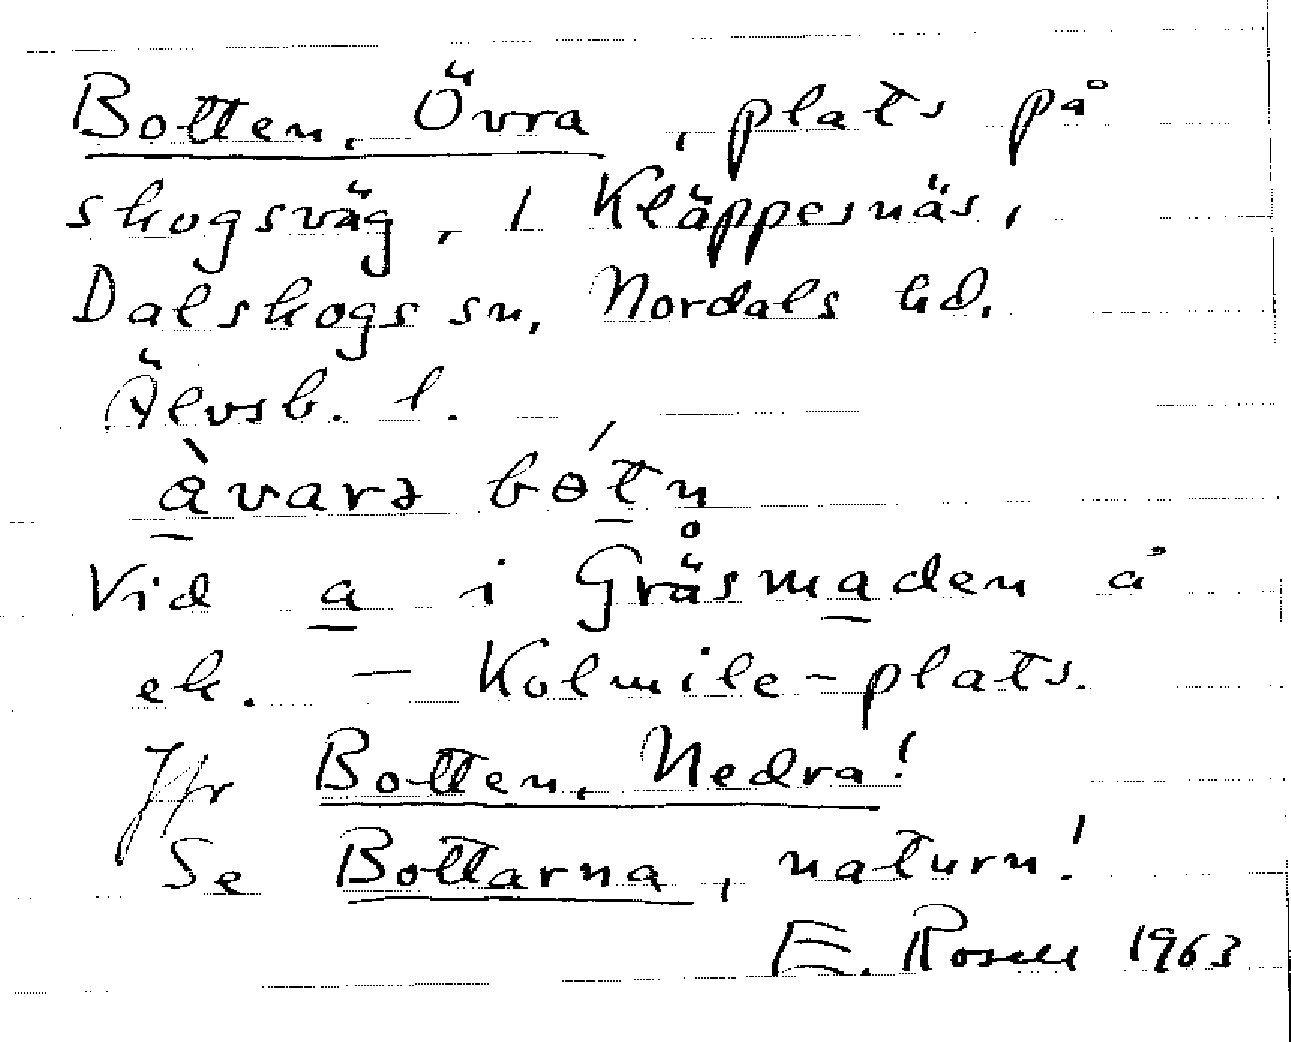 Botten, Övra, plats på
skogsväg, i Kläppesnäs,
Dalskogs sn, Nordals hd.
Älvsb. l.
à̱varə bót̠n̥
Vid a̱ i Gräsma̱den å
ek. — Kolmile-plats.
Jfr Botten, Nedra!
Se Bottarna, naturn!
E. Rosell 1963